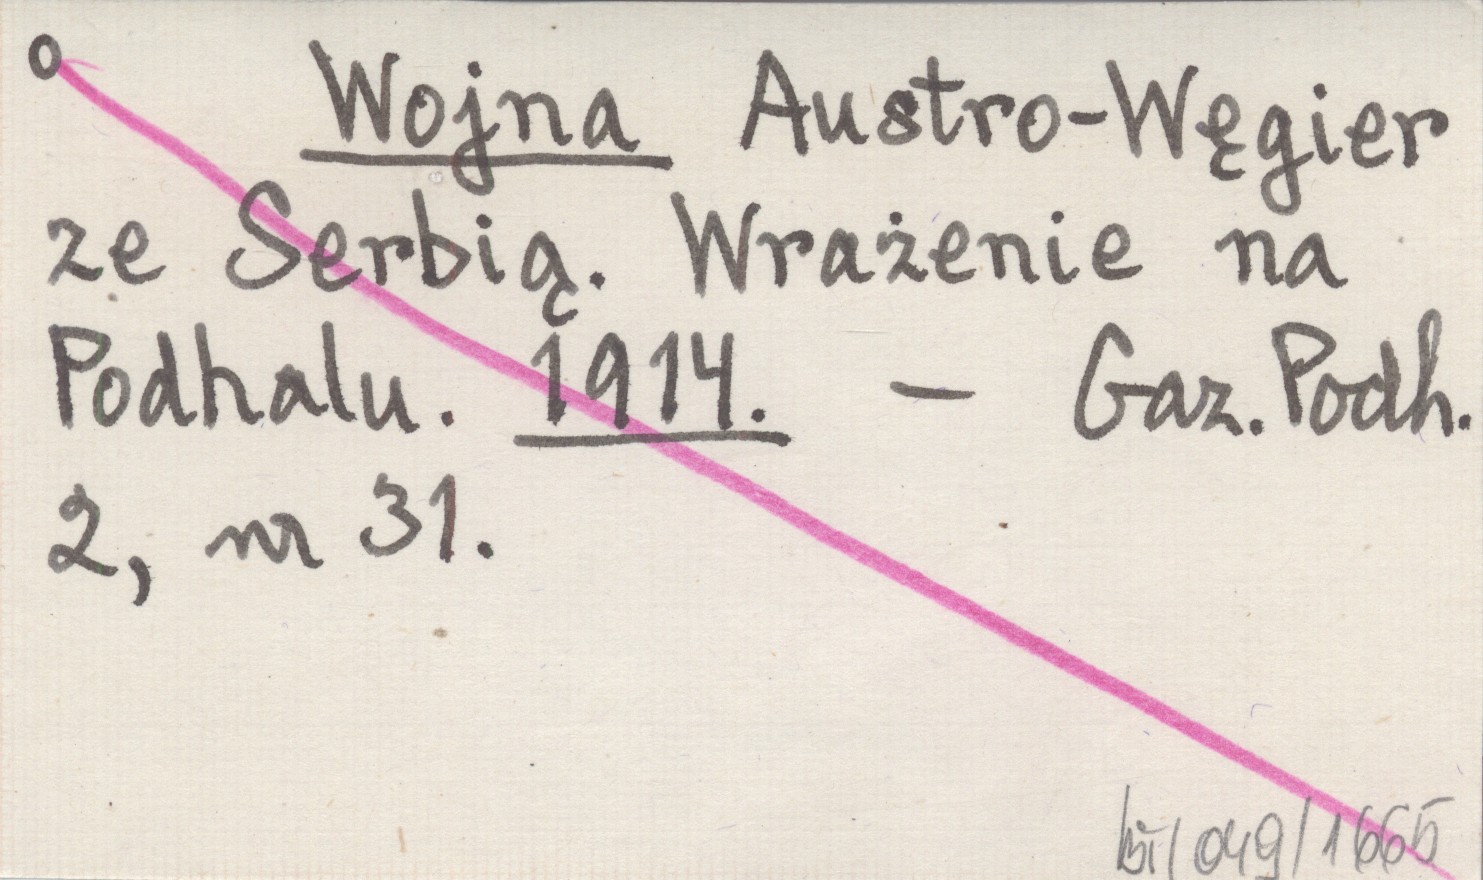 o Wojna Austro-Węgier
ze Serbią. Wrażenie na
Podhalu. 1914. — Gaz. Podh.
2, nr 31.
/049/1665